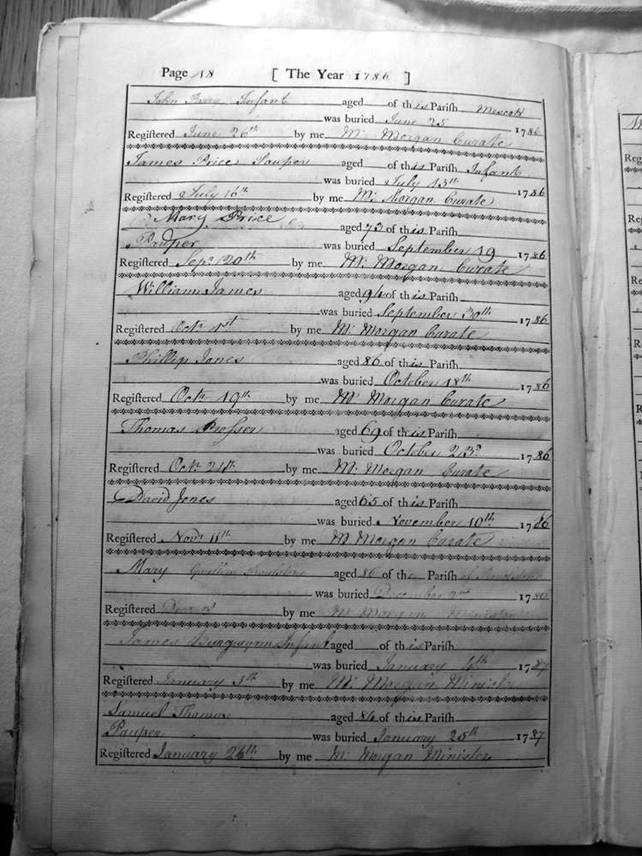 Page 18 [ The Year 1786 ]
John Infant aged of this Parish
was buried June 25 1786
Registered June 26th by me M. Morgan Curate
James Price Pauper aged of this Parish Infant
was buried July 15th 1786
Registered July 16th by me M. Morgan Curate
Mary Price aged 72 of this Parish
Pauper was buried September 19 1786
Registered Sepr. 20th by me M. Morgan Curate
William James aged 94 of this Parish
was buried September 30th 1786
Registered Octr. 1st by me M. Morgan Curate
Phillip Jones aged 86 of this Parish
was buried October 18th 1786
Registered Octr. 19th by me M. Morgan Curate
Thomas Prosser aged 69 of this Parish
was buried October 23d 1786
Registered Octr. by me M. Morgan Curate
David Jones aged 65 of this Parish
was buried November 10th 1786
Registered Novr. 11th by me M. Morgan Curate
Mary aged 86 of the Parish
was buried December 1786
Registered by me M. Morgan Minister
James Infant aged of this Parish
was buried January 1787
Registered January by me M. Morgan Minister
Samuel Thomas aged 84 of this Parish
Pauper was buried January 25th 1787
Registered January 26th by me M. Morgan Minister